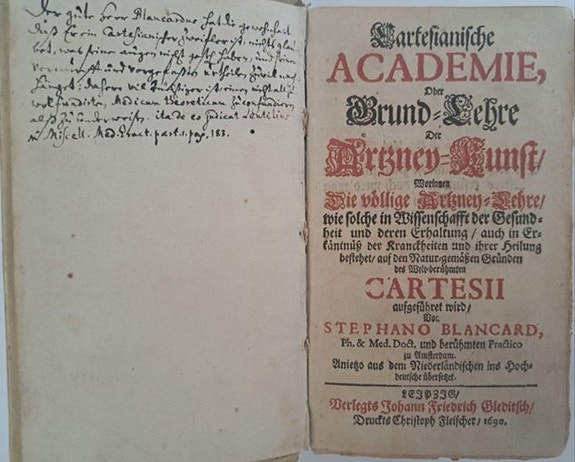 Der gute Herr Blancardus hat die gewohnheit
daß Er ein Cartesianischer Zweifler ist, nichts glau
bet, was seine augen nicht gesehen haben, und seiner
vernunfft und vorgefaßten urtheilen
hänget: Dahero viel ist einen nicht all zu
wol fundirten Medicum theoreticum zu confundiren
alß zu unterweisen. ita de eo judicat Lentilius
in Miscell. Med. Pract. part. 1. pag. 183.
Cartesianische
ACADEMIE,
Oder
Grund-Lehre
Der
Artzney-Kunst/
Worinnen
Die völlige Artzney-Lehre/
wie solche in Wissenschafft der Gesund-
heit und deren Erhaltung/ auch in Er-
käntnüß der Kranckheiten und ihrer Heilung
bestehet/ auf den Natur-gemäßen Gründen
des Welt-berühmten
CARTESII
aufgeführet wird/
Von
STEPHANO BLANCARD,
Ph. & Med. Doct. und berühmten Practico
zu Amsterdam.
Anietzo aus dem Niederländischen ins Hoch-
deutsche übersetzet.
LEIPZIG/
Verlegts Johann Friedrich Gleditsch/
Druckts Christoph Fleischer/ 1690.